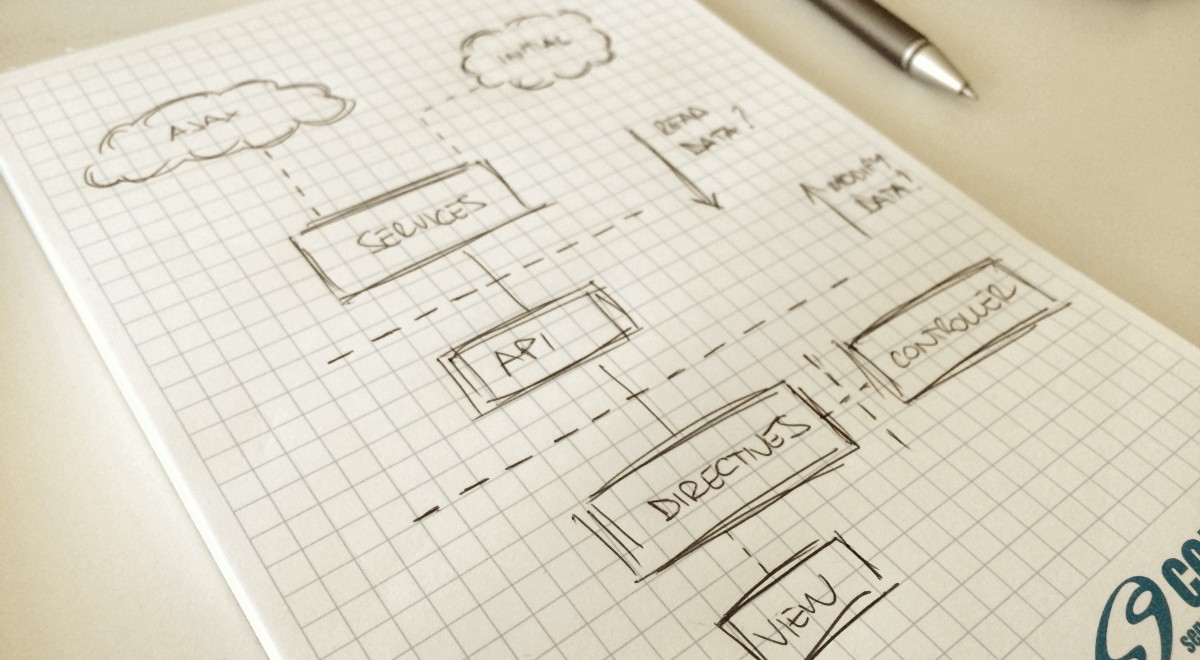 INITIAL
AJAX
READ
DATA?
MODIFY
DATA?
SERVICES
API
CONTROLLER
DIRECTIVES
VIEW